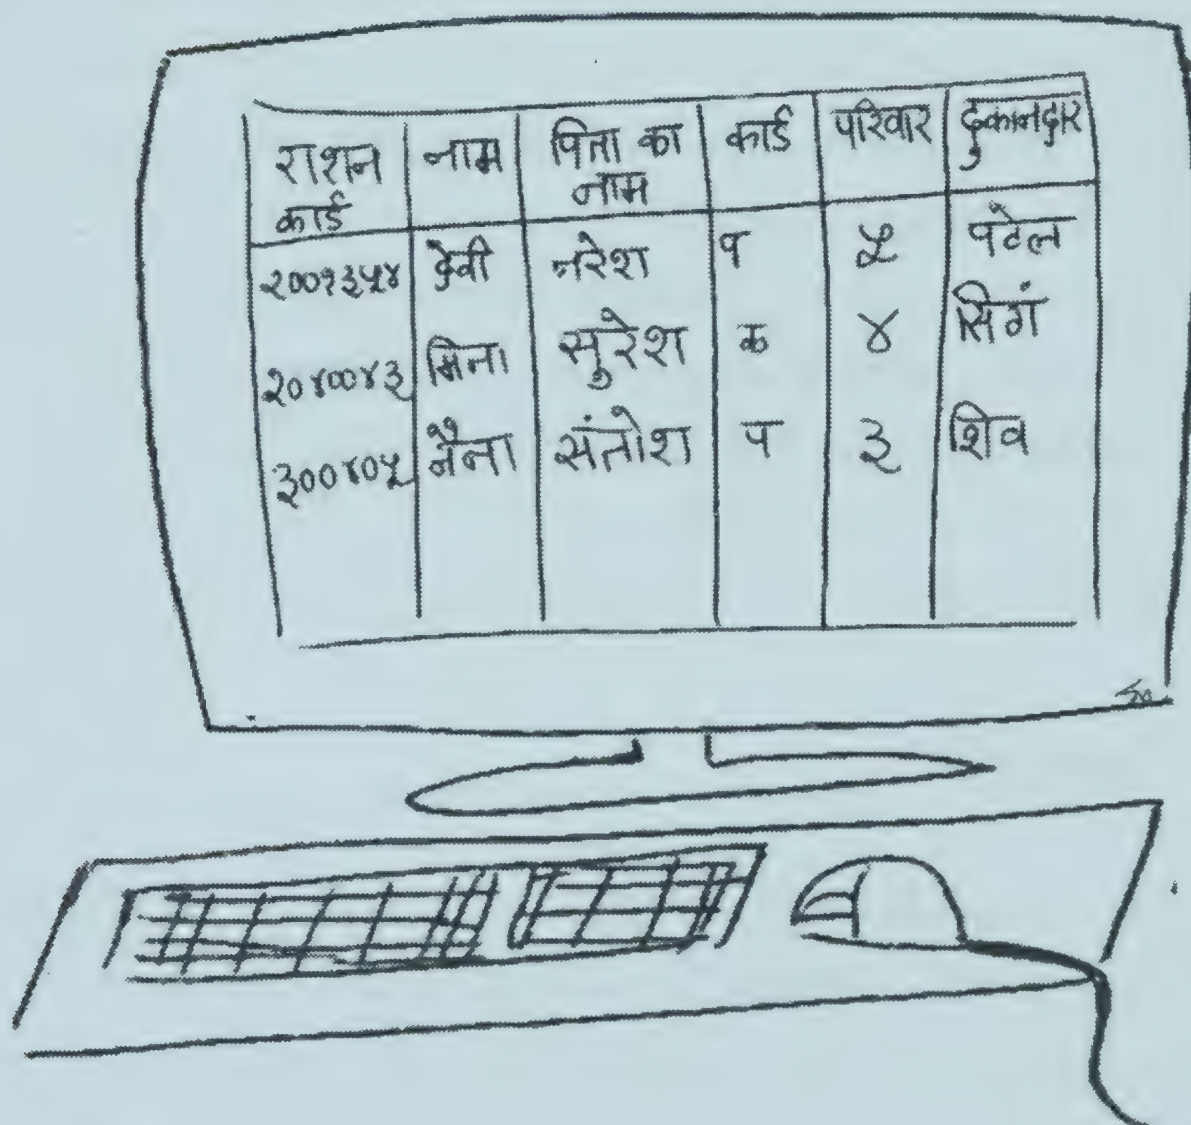 राशन कार्ड नाम पिता का नाम कार्ड परिवार दुकानदार
२००१३५४ देवी नरेश प ५ पटेल
२०४००४३ मिना सुरेश क ४ सिगं
३००४०५ नैना संतोश प ३ शिव